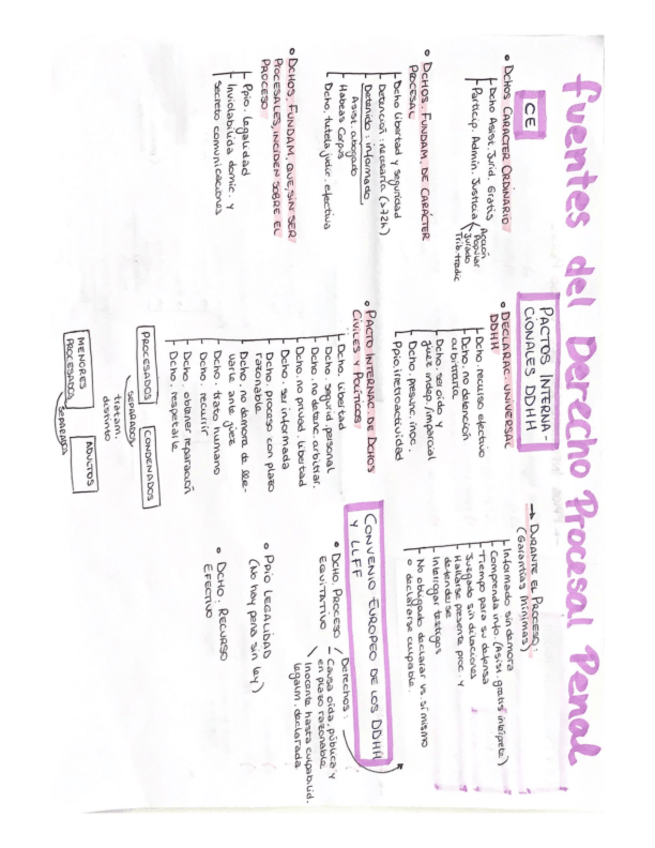 Fuentes del Derecho Procesal Penal
CE
• DCHOS. CARÁCTER ORDINARIO
Dcho Asist. Jurid. Gratis
Particip. Admin. Justicia
Acción Popular
Jurado
Trib. tradic
• DCHOS. FUNDAM. DE CARÁCTER
PROCESAL
Dcho libertad y seguridad
Detención: necesaria (>72h)
Detenido: informado
Asist. abogado
Habeas Corpus
Dcho. tutela judic. efectiva
• DCHOS. FUNDAM. QUE, SIN SER
PROCESALES, INCIDEN SOBRE EL
PROCESO
Ppio. legalidad
Inviolabilida domic. y
secreto comunicaciones
PACTOS INTERNA-
CIONALES DDHH
• DECLARAC. UNIVERSAL
DDHH
Dcho. recurso efectivo
Dcho. no detención
arbitraria
Dcho. ser oído y
juez indep/imparcial
Dcho. presunc. inoc.
Ppio. irretroactividad
• PACTO INTERNAC. DE DCHOS
CIVILES Y POLÍTICOS
Dcho. libertad
Dcho. segurid. personal
Dcho. no detenc. arbitrar.
Dcho. no privad. libertad
Dcho. ser informada
Dcho. proceso con plazo
razonable
Dcho. no demora de lle-
varle ante juez
Dcho. trato humano
Dcho. recurrir
Dcho. obtener reparación
Dcho. respetarle
PROCESADOS
SEPARADOS
CONDENADOS
tratam.
distinto
MENORES
PROCESADOS
SEPARADOS
ADULTOS
→ DURANTE EL PROCESO:
(Garantías mínimas)
Informado sin demora
Comprenda info. (Asist. gratis intérprete)
Tiempo para su defensa
Juzgado sin dilaciones
Hallarse presente proc. y
defenderse
Interrogar testigos
No obligado declarar vs. sí mismo
o declararse culpable.
CONVENIO EUROPEO DE LOS DDHH
Y LLFF
• DCHO. PROCESO
EQUITATIVO
Derechos:
Causa oída, pública y
en plazo razonable
Inocente hasta culpabilid.
legalm. declarada
• PPIO LEGALIDAD
(No hay pena sin ley)
• DCHO. RECURSO
EFECTIVO